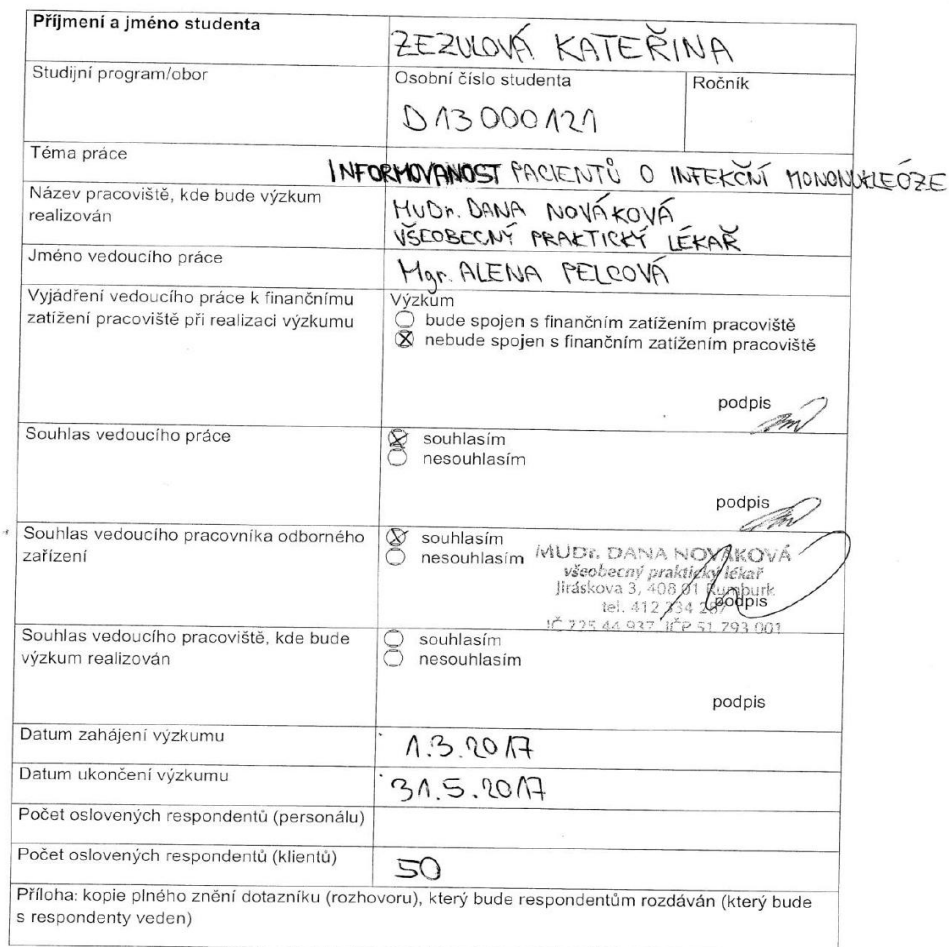 Příjmení a jméno studenta
ZEZULOVÁ KATEŘINA
Studijní program/obor
Osobní číslo studenta
D13000121
Ročník
Téma práce
INFORMOVANOST PACIENTŮ O INFEKČNÍ MONONUKLEÓZE
Název pracoviště, kde bude výzkum
realizován
MUDr. DANA NOVÁKOVÁ
VŠEOBECNÝ PRAKTICKÝ LÉKAŘ
Jméno vedoucího práce
Mgr. ALENA PELCOVÁ
Vyjádření vedoucího práce k finančnímu
zatížení pracoviště při realizaci výzkumu
Výzkum
bude spojen s finančním zatížením pracoviště
nebude spojen s finančním zatížením pracoviště
podpis
Souhlas vedoucího práce
souhlasím
nesouhlasím
podpis
Souhlas vedoucího pracovníka odborného
zařízení
souhlasím
nesouhlasím
MUDr. DANA NOVÁKOVÁ
všeobecný praktický lékař
Jiráskova 3, 408 01 Rumburk
tel. 412 334
podpis
IČ 225 44 937, IČP 51 793 001
Souhlas vedoucího pracoviště, kde bude
výzkum realizován
souhlasím
nesouhlasím
podpis
Datum zahájení výzkumu
1.3.2017
Datum ukončení výzkumu
31.5.2017
Počet oslovených respondentů (personálu)
Počet oslovených respondentů (klientů)
50
Příloha: kopie plného znění dotazníku (rozhovoru), který bude respondentům rozdáván (který bude
s respondenty veden)